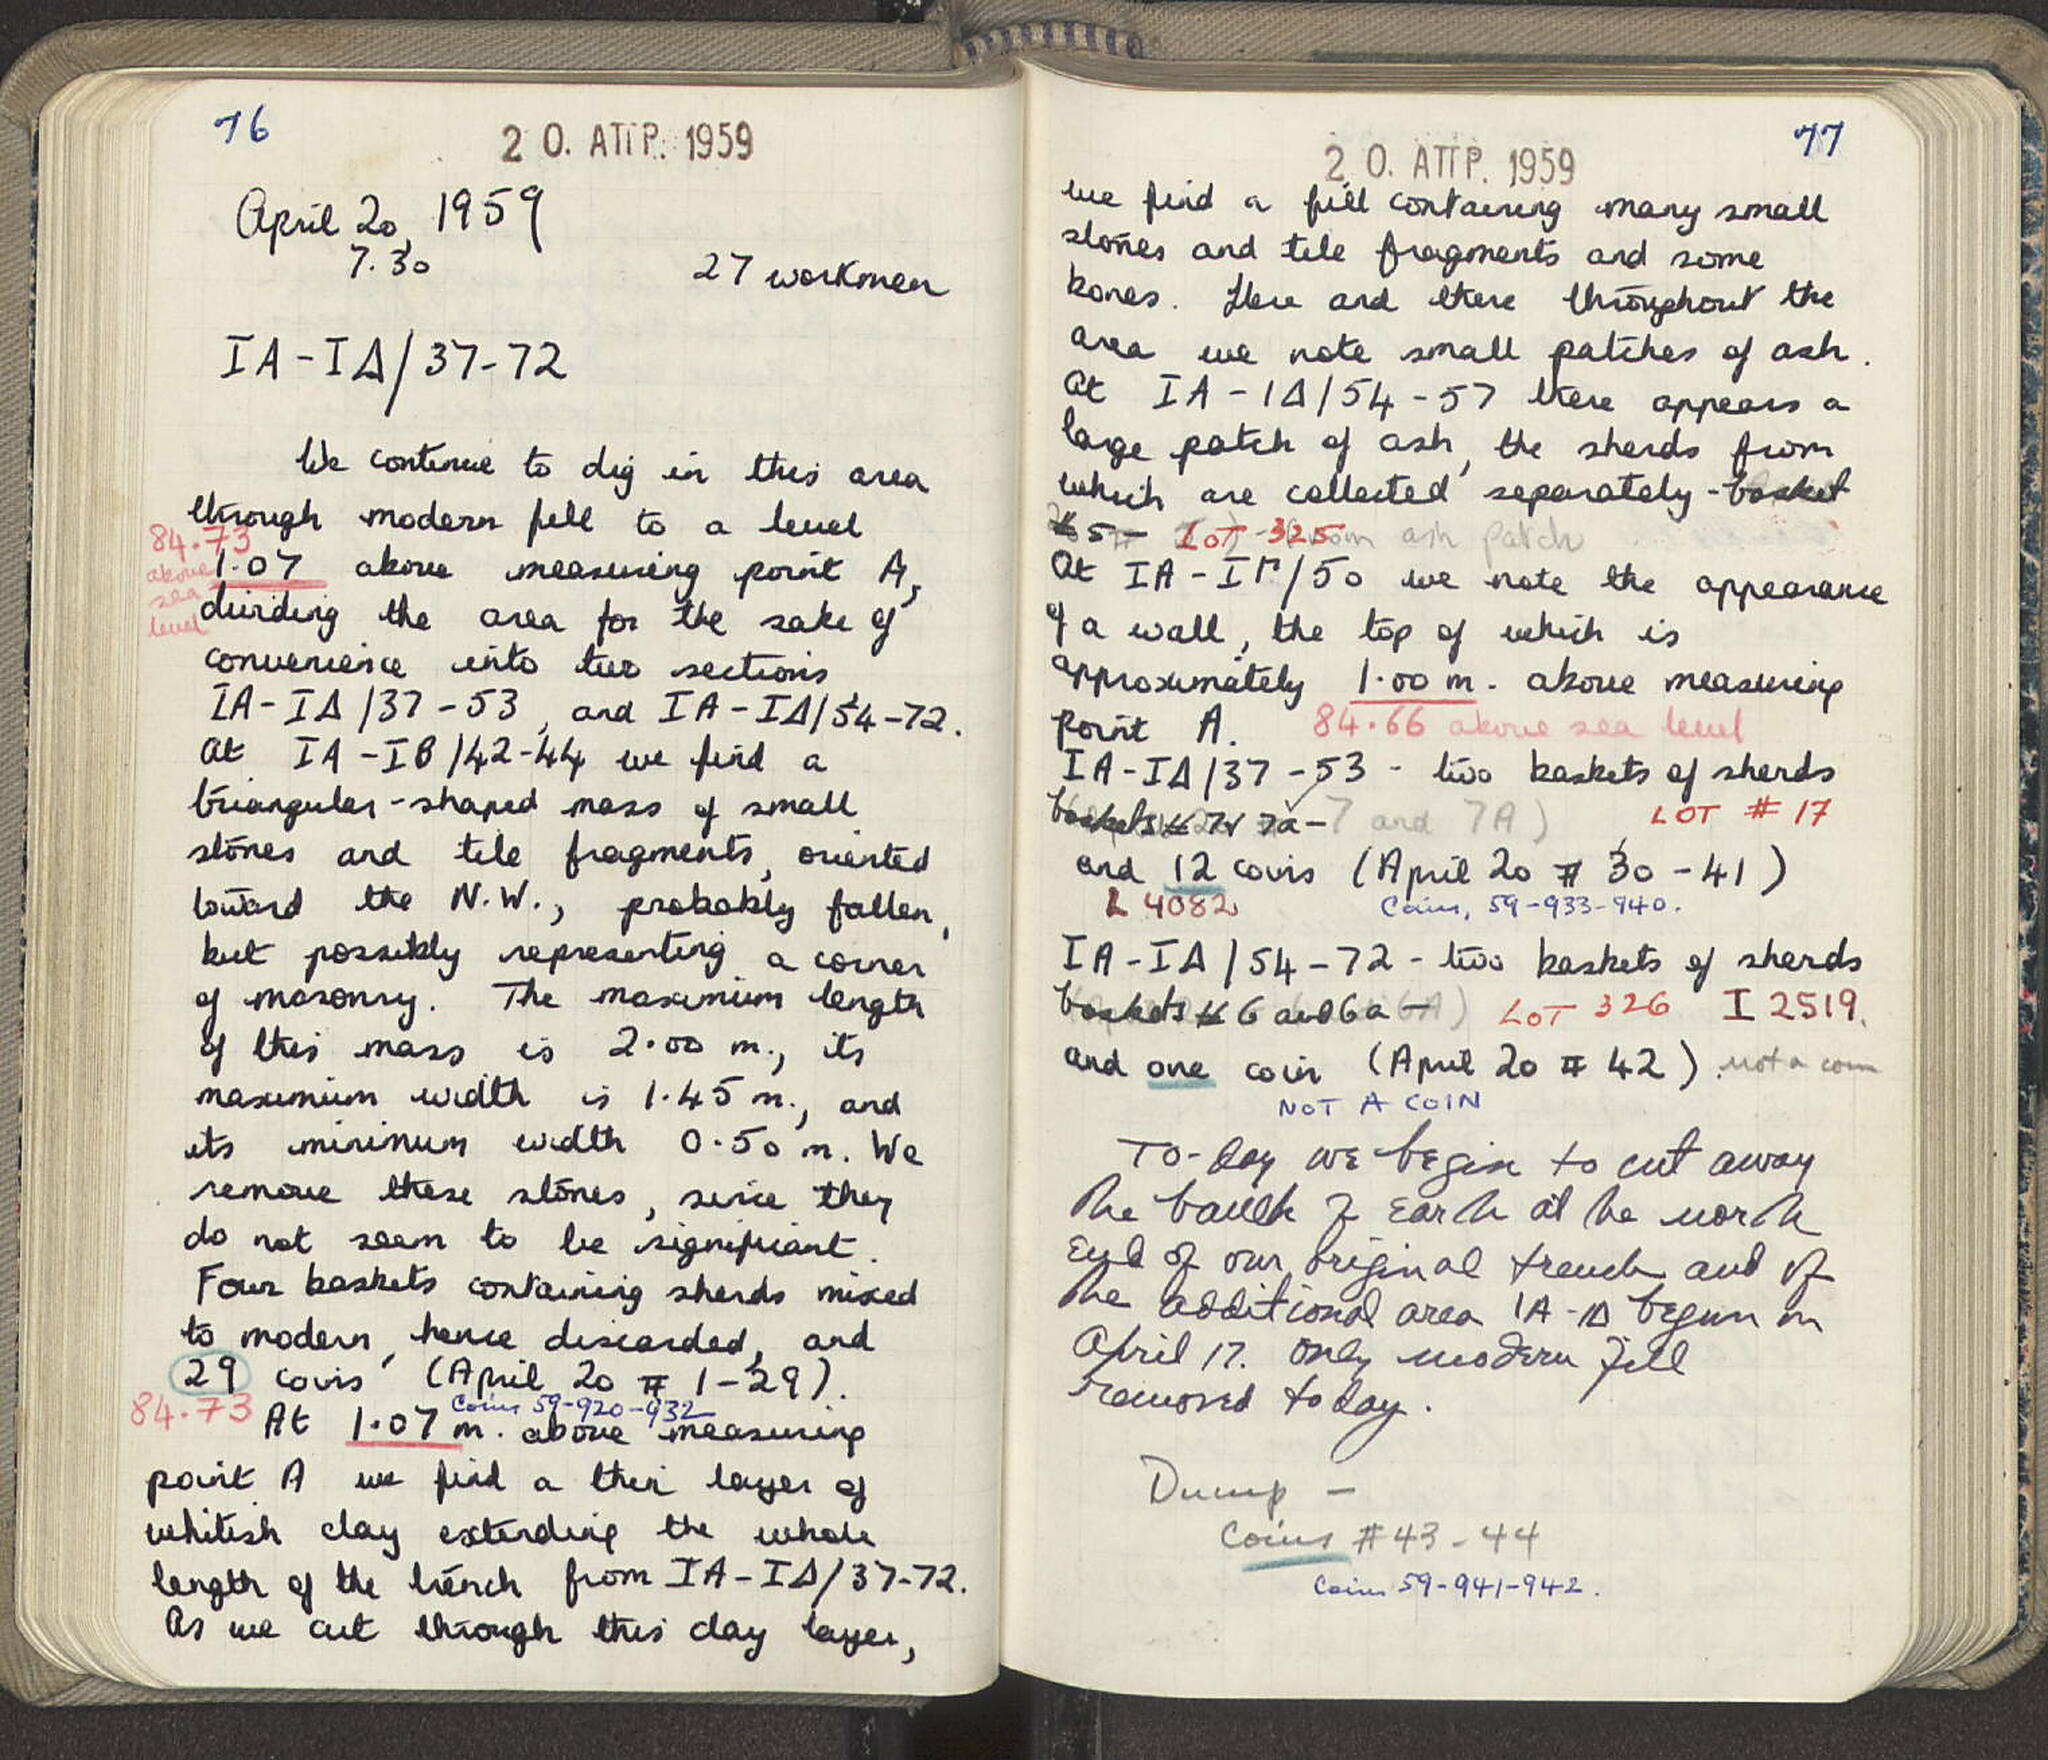 76
20. ΑΠΡ. 1959
April 20, 1959
7.30
27 workmen
ΙΑ-ΙΔ/37-72
We continue to dig in this area
through modern fill to a level
84.73 above sea level
1.07 above measuring point A,
dividing the area for the sake of
convenience into two sections
ΙΑ-ΙΔ/37-53, and ΙΑ-ΙΔ/54-72.
At ΙΑ-ΙΒ/42-44 we find a
triangular-shaped mass of small
stones and tile fragments, oriented
toward the N.W., probably fallen,
but possibly representing a corner
of masonry. The maximum length
of this mass is 2.00 m., its
maximum width is 1.45 m., and
its minimum width 0.50 m. We
remove these stones, since they
do not seem to be significant.
Four baskets containing sherds mixed
to modern, hence discarded, and
29 coins (April 20 # 1-29).
Coins 59-920-932
84.73
At 1.07 m. above measuring
point A we find a thin layer of
whitish clay extending the whole
length of the trench from ΙΑ-ΙΔ/37-72.
As we cut through this clay layer,
77
20. ΑΠΡ. 1959
we find a fill containing many small
stones and tile fragments and some
bones. Here and there throughout the
area we note small patches of ash.
At ΙΑ-ΙΔ/54-57 there appears a
large patch of ash, the sherds from
which are collected separately - basket
# 5 - LOT 325 from ash patch
At ΙΑ-ΙΓ/50 we note the appearance
of a wall, the top of which is
approximately 1.00 m. above measuring
point A. 84.66 above sea level
ΙΑ-ΙΔ/37-53 - two baskets of sherds
baskets # 7 & 7a - 7 and 7A) LOT # 17
and 12 coins (April 20 # 30-41)
L 4082 Coins, 59-933-940.
ΙΑ-ΙΔ/54-72 - two baskets of sherds
baskets # 6 and 6a - 6A) LOT 326 I 2519.
and one coin (April 20 # 42). not a coin
NOT A COIN
To-day we begin to cut away
the baulk of earth at the north
end of our original trench and of
the additional area ΙΑ-ΙΔ begun on
April 17. Only modern fill
removed today.
Dump -
Coins # 43-44
Coins 59-941-942.